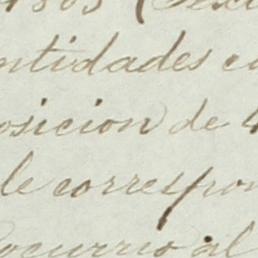 1803
ntidades
osicion de 4
le correspon
ocurrio al